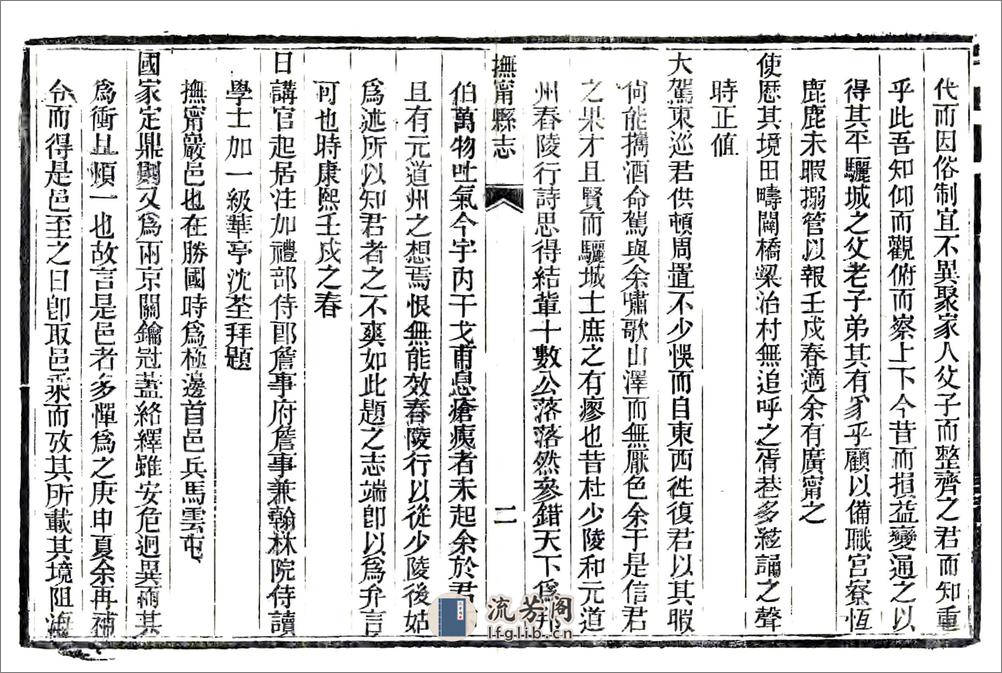 代而因俗制宜不異聚家人父子而整齊之君而知重
乎此吾知仰而觀俯而察上下今昔而損益變通之以
得其平驪城之父老子弟其有豸乎顧以備職官寮恆
鹿鹿未暇搦管以報壬戍春適余有廣甯之
使歴其境田疇闢橋梁治村無追呼之胥巷多絃誦之聲
時正值
大駕東巡君供頓周置不少悞而自東西徃復君以其暇
尙能擕酒命駕與余嘯歌山澤而無厭色余于是信君
之果才且賢而驪城士庶之有瘳也昔杜少陵和元道
州舂陵行詩思得結輩十數公落落然參錯天下爲邦
撫甯縣志
二
伯萬物吐氣今宇內干戈甫息瘡痍者未起余於君
且有元道州之想焉恨無能效舂陵行以從少陵後姑
爲述所以知君者之不爽如此題之志端卽以爲弁言
可也時康熙壬戍之春
日講官起居注加禮部侍郎詹事府詹事兼翰林院侍讀
學士加一級華亭沈荃拜題
撫甯嚴邑也在勝國時爲極邊首邑兵馬雲屯
國家定鼎與又爲兩京關鑰冠蓋絡繹雖安危迥異而其
爲衝且煩一也故言是邑者多憚爲之庚申夏余再補
令而得是邑至之日卽取邑乘而攷其所載其境阻海
流芳阁
lfglib.cn